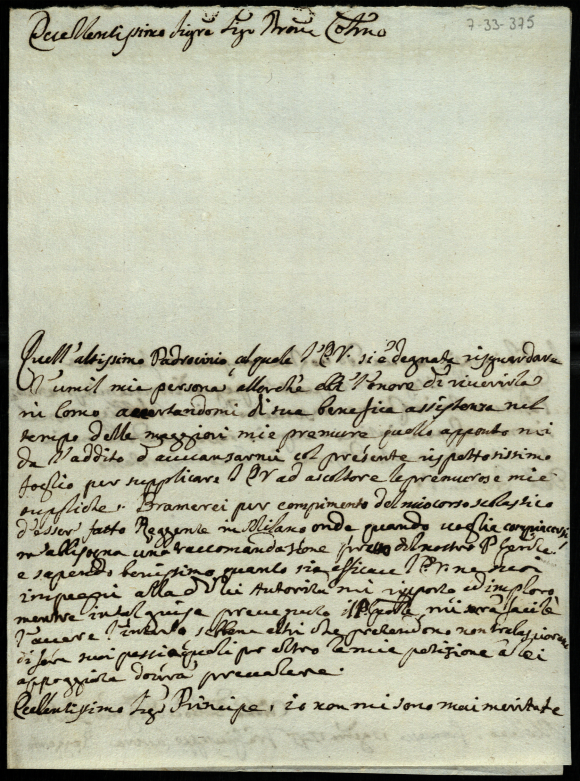 7-33-375
Eccellentissimo Sigre Sigr Prone Colmo
Quell'altissimo Padrocinio, al quale l'E.V. si è degnata risguardare
l'umil mia persona, allorchè ebbi l'onore di riverirla
in Como accertandomi di sua benefica assistenza nel
tempo delle maggiori mie premure quello apponto mi
da l'addito d'avvansarmi col presente rispettosissimo
foglio per supplicare l'EV ad ascoltare le premurose mie
suppliche. Bramerei per compimento del mio corso scolastico
d'esser fatto Reggente in Milano onde quando voglia compiacersi
m'abbisogna una raccomandazione del nostro P
e sapendo benissimo quanto sia efficace l'E.V. ne suoi
impegni alla di lei Autorità mi rapporto ed imploro
mentre in tal guisa prevenuto il mi sarà facile
l'avere l'intento sebbene altri che pretendono non tralasciorano
di far suoi passi quali per altro la mia petizione a lei
appoggiata dourà prevalere.
Eccellentissimo Sigr Principe, io non mi sono mai meritato